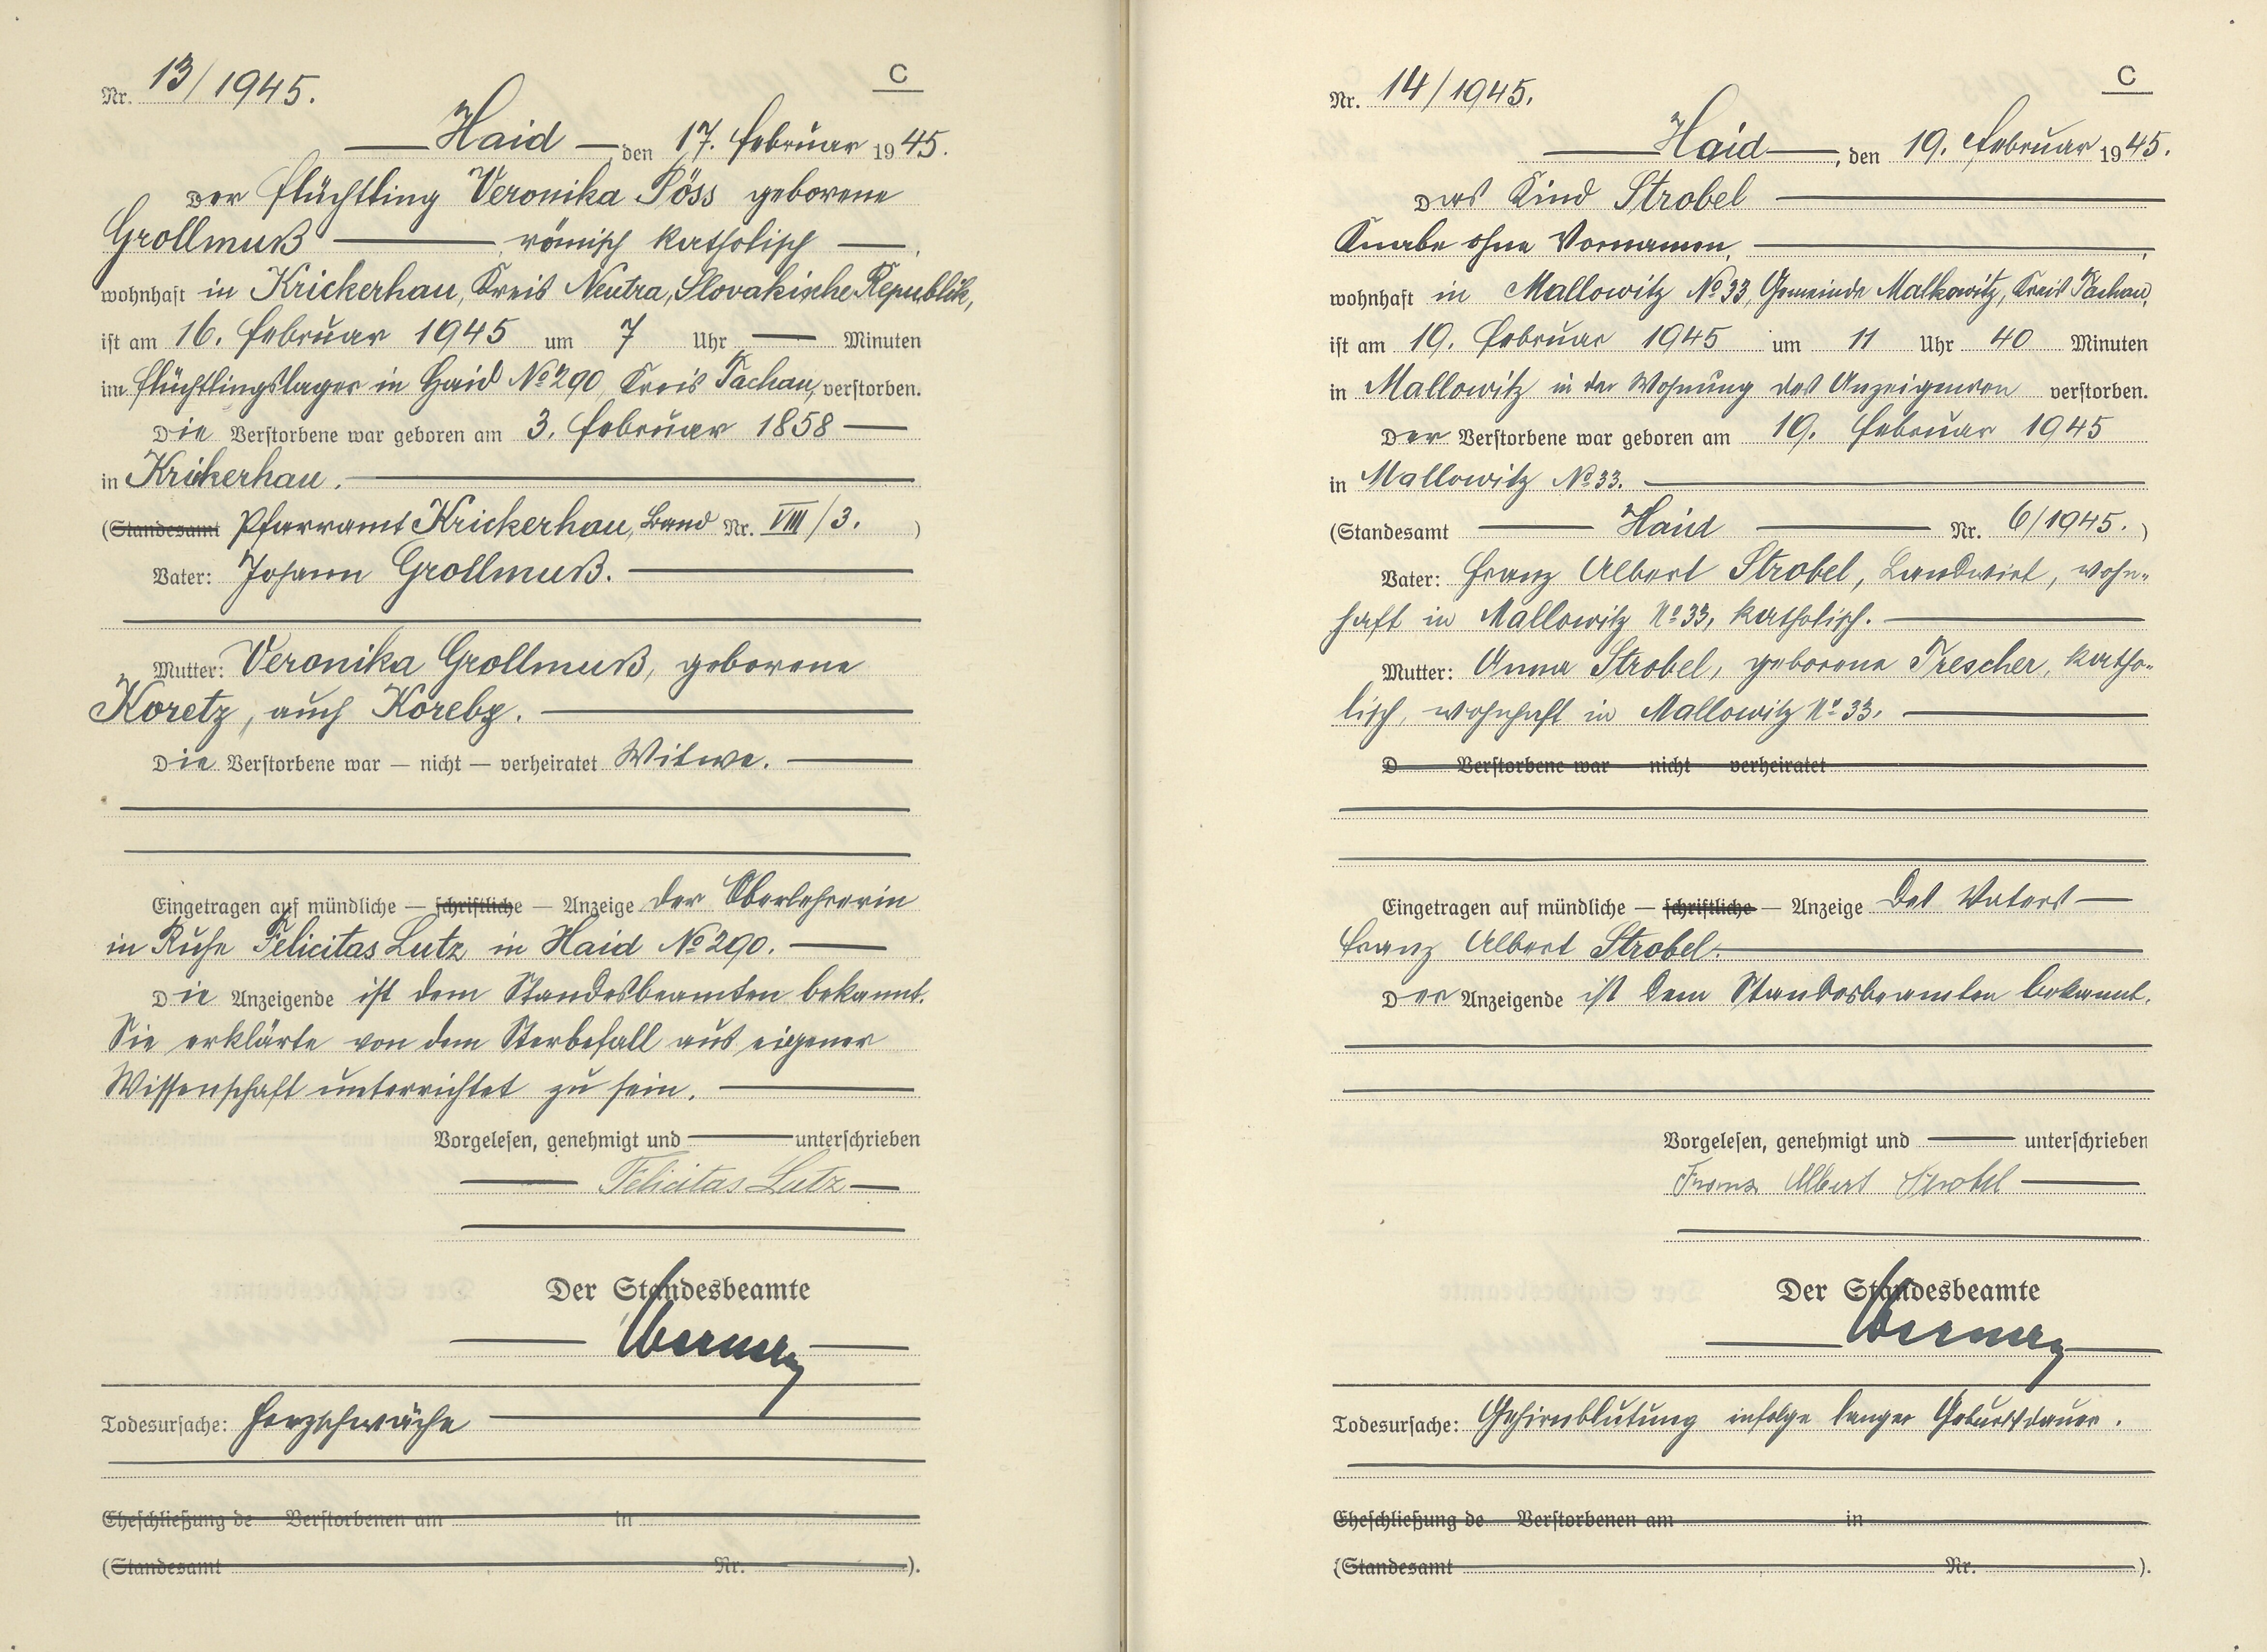 Nr. 13/1945.
C
Haid, den 17. Februar 1945.
Der Flüchtling Veronika Pöss geborene
Grollmuß römisch katholisch
wohnhaft in Krickerhau, Kreis Neutra, Slovakische Republik,
ist am 16. Februar 1945 um 7 Uhr Minuten
im Flüchtlingslager in Haid No 290, Kreis Tachau, verstorben.
Die Verstorbene war geboren am 3. Februar 1858
in Krickerhau.
(Standesamt Pfarramt Krickerhau, Band Nr. VIII/3. )
Vater: Johann Grollmuß.
Mutter: Veronika Grollmuß, geborene
Koretz, auch
Die Verstorbene war — nicht — verheiratet Witwe.
Eingetragen auf mündliche — schriftliche — Anzeige der Oberlehrerin
in Ruhe Felicitas Lutz in Haid No 290.
Die Anzeigende ist dem Standesbeamten bekannt.
Sie erklärte von dem Sterbefall aus eigener
Wissenschaft unterrichtet zu sein.
Vorgelesen, genehmigt und unterschrieben
Felicitas Lutz
Der Standesbeamte
Todesursache: Herzschwäche
Eheschließung de Verstorbenen am in
(Standesamt Nr. ).
Nr. 14/1945.
C
Haid, den 19. Februar 1945.
Das Kind Strobel
Knabe ohne Vornamen,
wohnhaft in Mallowitz No 33, Gemeinde Malkowitz, Kreis Tachau,
ist am 19. Februar 1945 um 11 Uhr 40 Minuten
in Mallowitz in der Wohnung des Anzeigenden verstorben.
Der Verstorbene war geboren am 19. Februar 1945
in Mallowitz No 33.
(Standesamt Haid Nr. 6/1945. )
Vater: Franz Albert Strobel, Landwirt, wohn-
haft in Mallowitz No 33, katholisch.
Mutter: Anna Strobel, geborene Trescher, katho-
lisch, wohnhaft in Mallowitz No 33.
D Verstorbene war nicht verheiratet
Eingetragen auf mündliche — schriftliche — Anzeige des Vaters
Franz Albert Strobel.
Der Anzeigende ist dem Standesbeamten bekannt.
Vorgelesen, genehmigt und unterschrieben
Franz Albert Strobel
Der Standesbeamte
Todesursache: Gehirnblutung infolge langer Geburtsdauer.
Eheschließung de Verstorbenen am in
(Standesamt Nr. ).